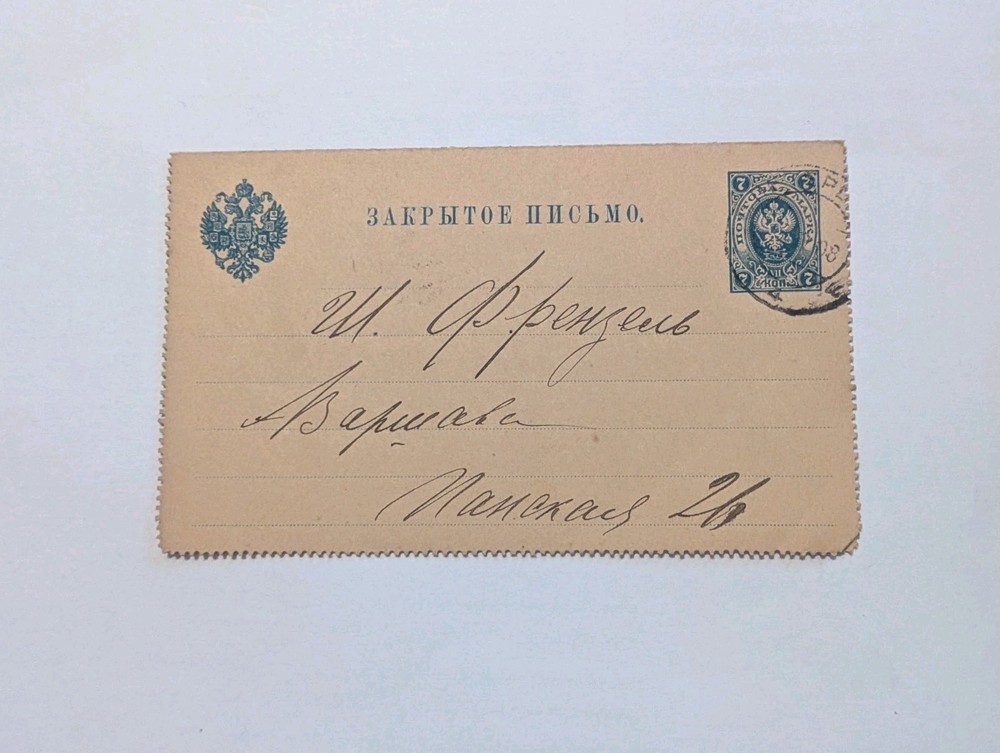 ЗАКРЫТОЕ ПИСЬМО.
7 7
ПОЧТОВАЯ МАРКА
VII
7 КОП. 7
08
Ш. Френзель
Варшава
Панская